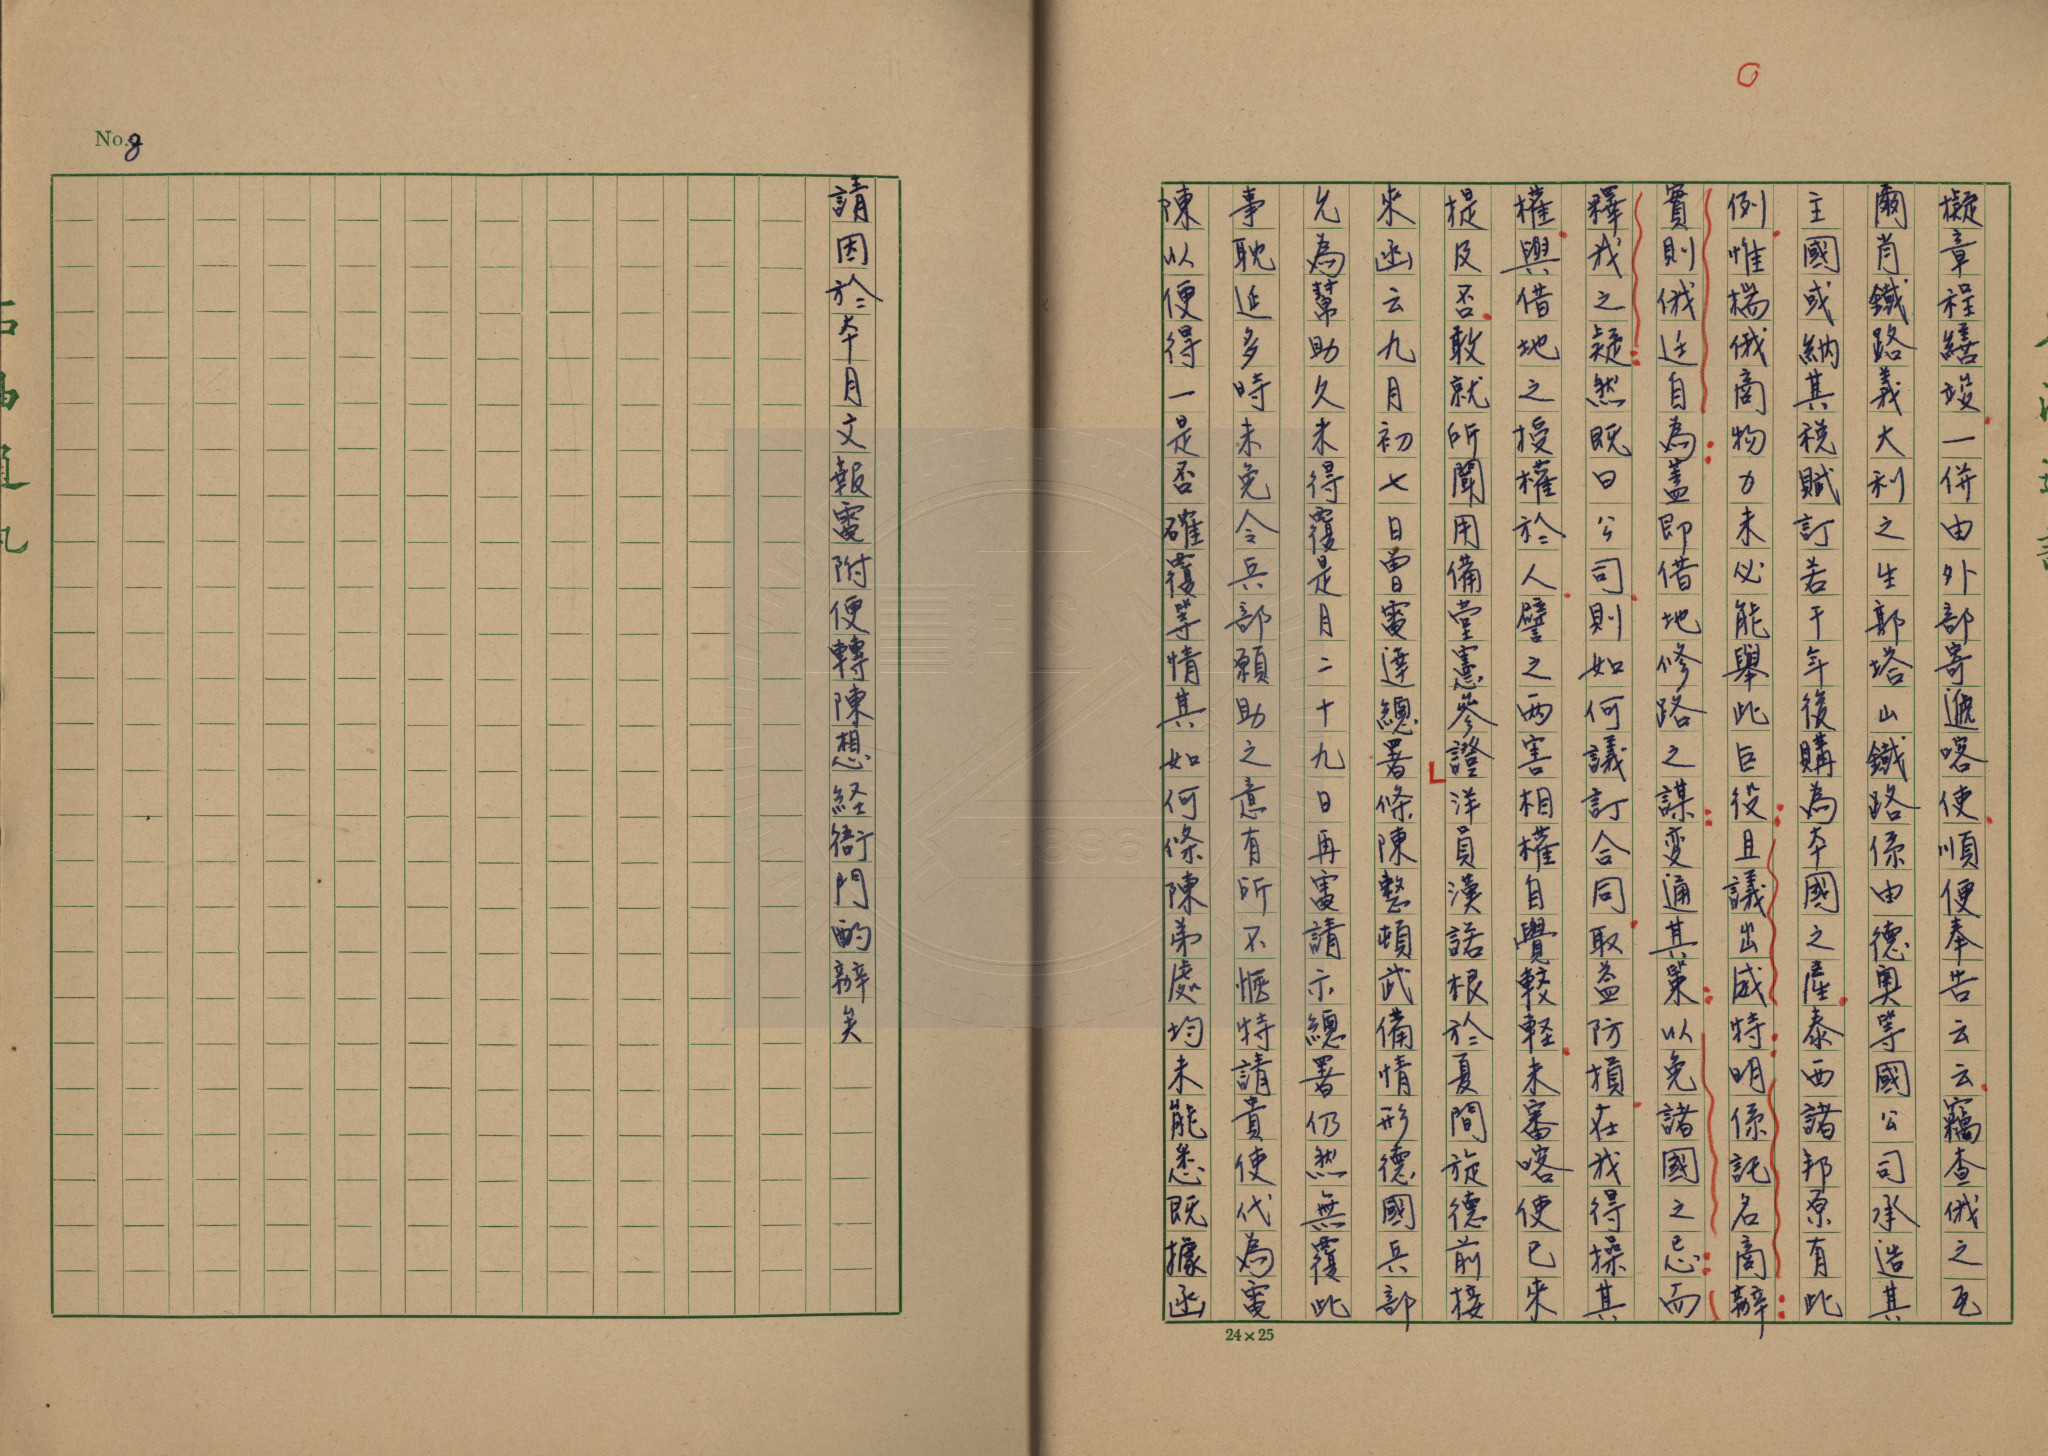 擬章程繕竣一併由外部寄遞喀使順便奉告云云竊查俄之瓦
爾肖鐵路義大利之生郭塔山鐵路係由德奧等國公司承造其
主國或納其稅賦訂若干年後購為本國之產泰西諸邦原有此
例惟揣俄商物力未必能舉此巨役且議出威特明係託名商辦
實則俄廷自為蓋即借地修路之謀变通其策以免諸國之忌而
釋我之疑然既曰公司則如何議訂合同取益防損在我得操其
權與借地之授權於人譬之兩害相權自覺較軽未審喀使已來
提及否敢就所聞用備堂憲參證洋員漢諾根於夏間旋德前接
來函云九月初七日曾電達總署條陳整頓武備情形德國兵部
允為幫助久未得覆是月二十九日再電請示總署仍然無覆此
事耽延多時未免令兵部願助之意有所不愜特請貴使代為電
陳以便得一是否確覆等情其如何條陳弟處均未能悉既據函
請因於本月文報電附便轉陳想経衙門酌辦矣
No.8
24×25